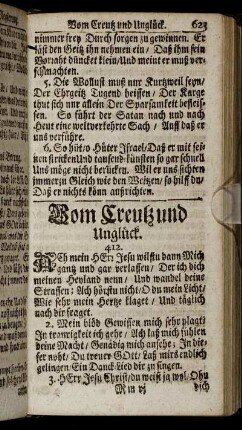 Vom Creutz und Unglück. 623
nimmer frey Durch sorgen zu gewinnen. Er
läst den Geitz ihn nehmen ein / Daß ihm sein
Vorraht düncket klein / Und meint er muß ver-
schmachten.
5. Die Wollust muß nur Kurtzweil seyn /
Der Ehrgeitz Tugend heissen / Der Karge
thut sich nur allein Der Sparsamkeit befleis-
sen. So führt der Satan nach und nach
Heut eine weltverkehrte Sach / Auff daß er
uns verführe.
6. So hüt / o Hüter Israel / Daß er mit sei-
nen stricken Und tausend künsten so gar schnell
Uns möge nicht berücken. Wil er uns sichten
immerzu Gleich wie den Weitzen / so hilff du /
Daß er nichts könn außrichten.
Vom Creutz und
Unglück.
412.
ACh mein HErr Jesu wilstu dann Mich
gantz und gar verlassen / Der ich dich
meinen Heyland nenn / Und wandel deine
Strassen: Ach hörstu nicht / O du mein Licht /
Wie sehr mein Hertze klaget / Und täglich
nach dir fraget.
2. Mein blöd Gewissen mich sehr plagt /
In traurigkeit ich gehe / Ach laß mich fühlen
deine Macht / Genädig mich ansehe: In die-
ser noht / Du treuer GOtt / Laß mirs endlich
gelingen Ein Danck-Lied dir zu singen.
3. HErr Jesu Christ / du weist ja wol / Ohn
dich